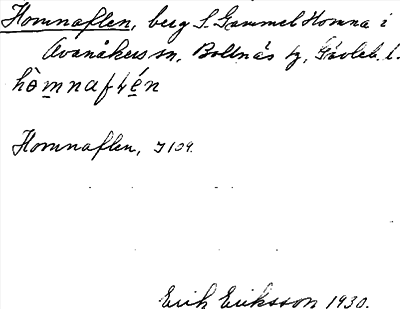 Homnaflen, berg S. Gammel Homna i
Ovanåkers sn, Bollnäs tg, Gävleb. l.
hòmnaflén
Homnaflen, J 109.
Erik Eriksson 1930.